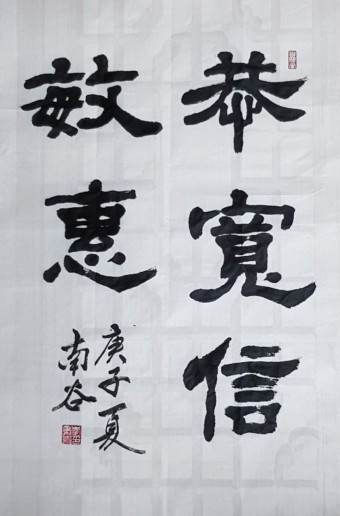 恭寬信
敏惠
庚子夏
南谷